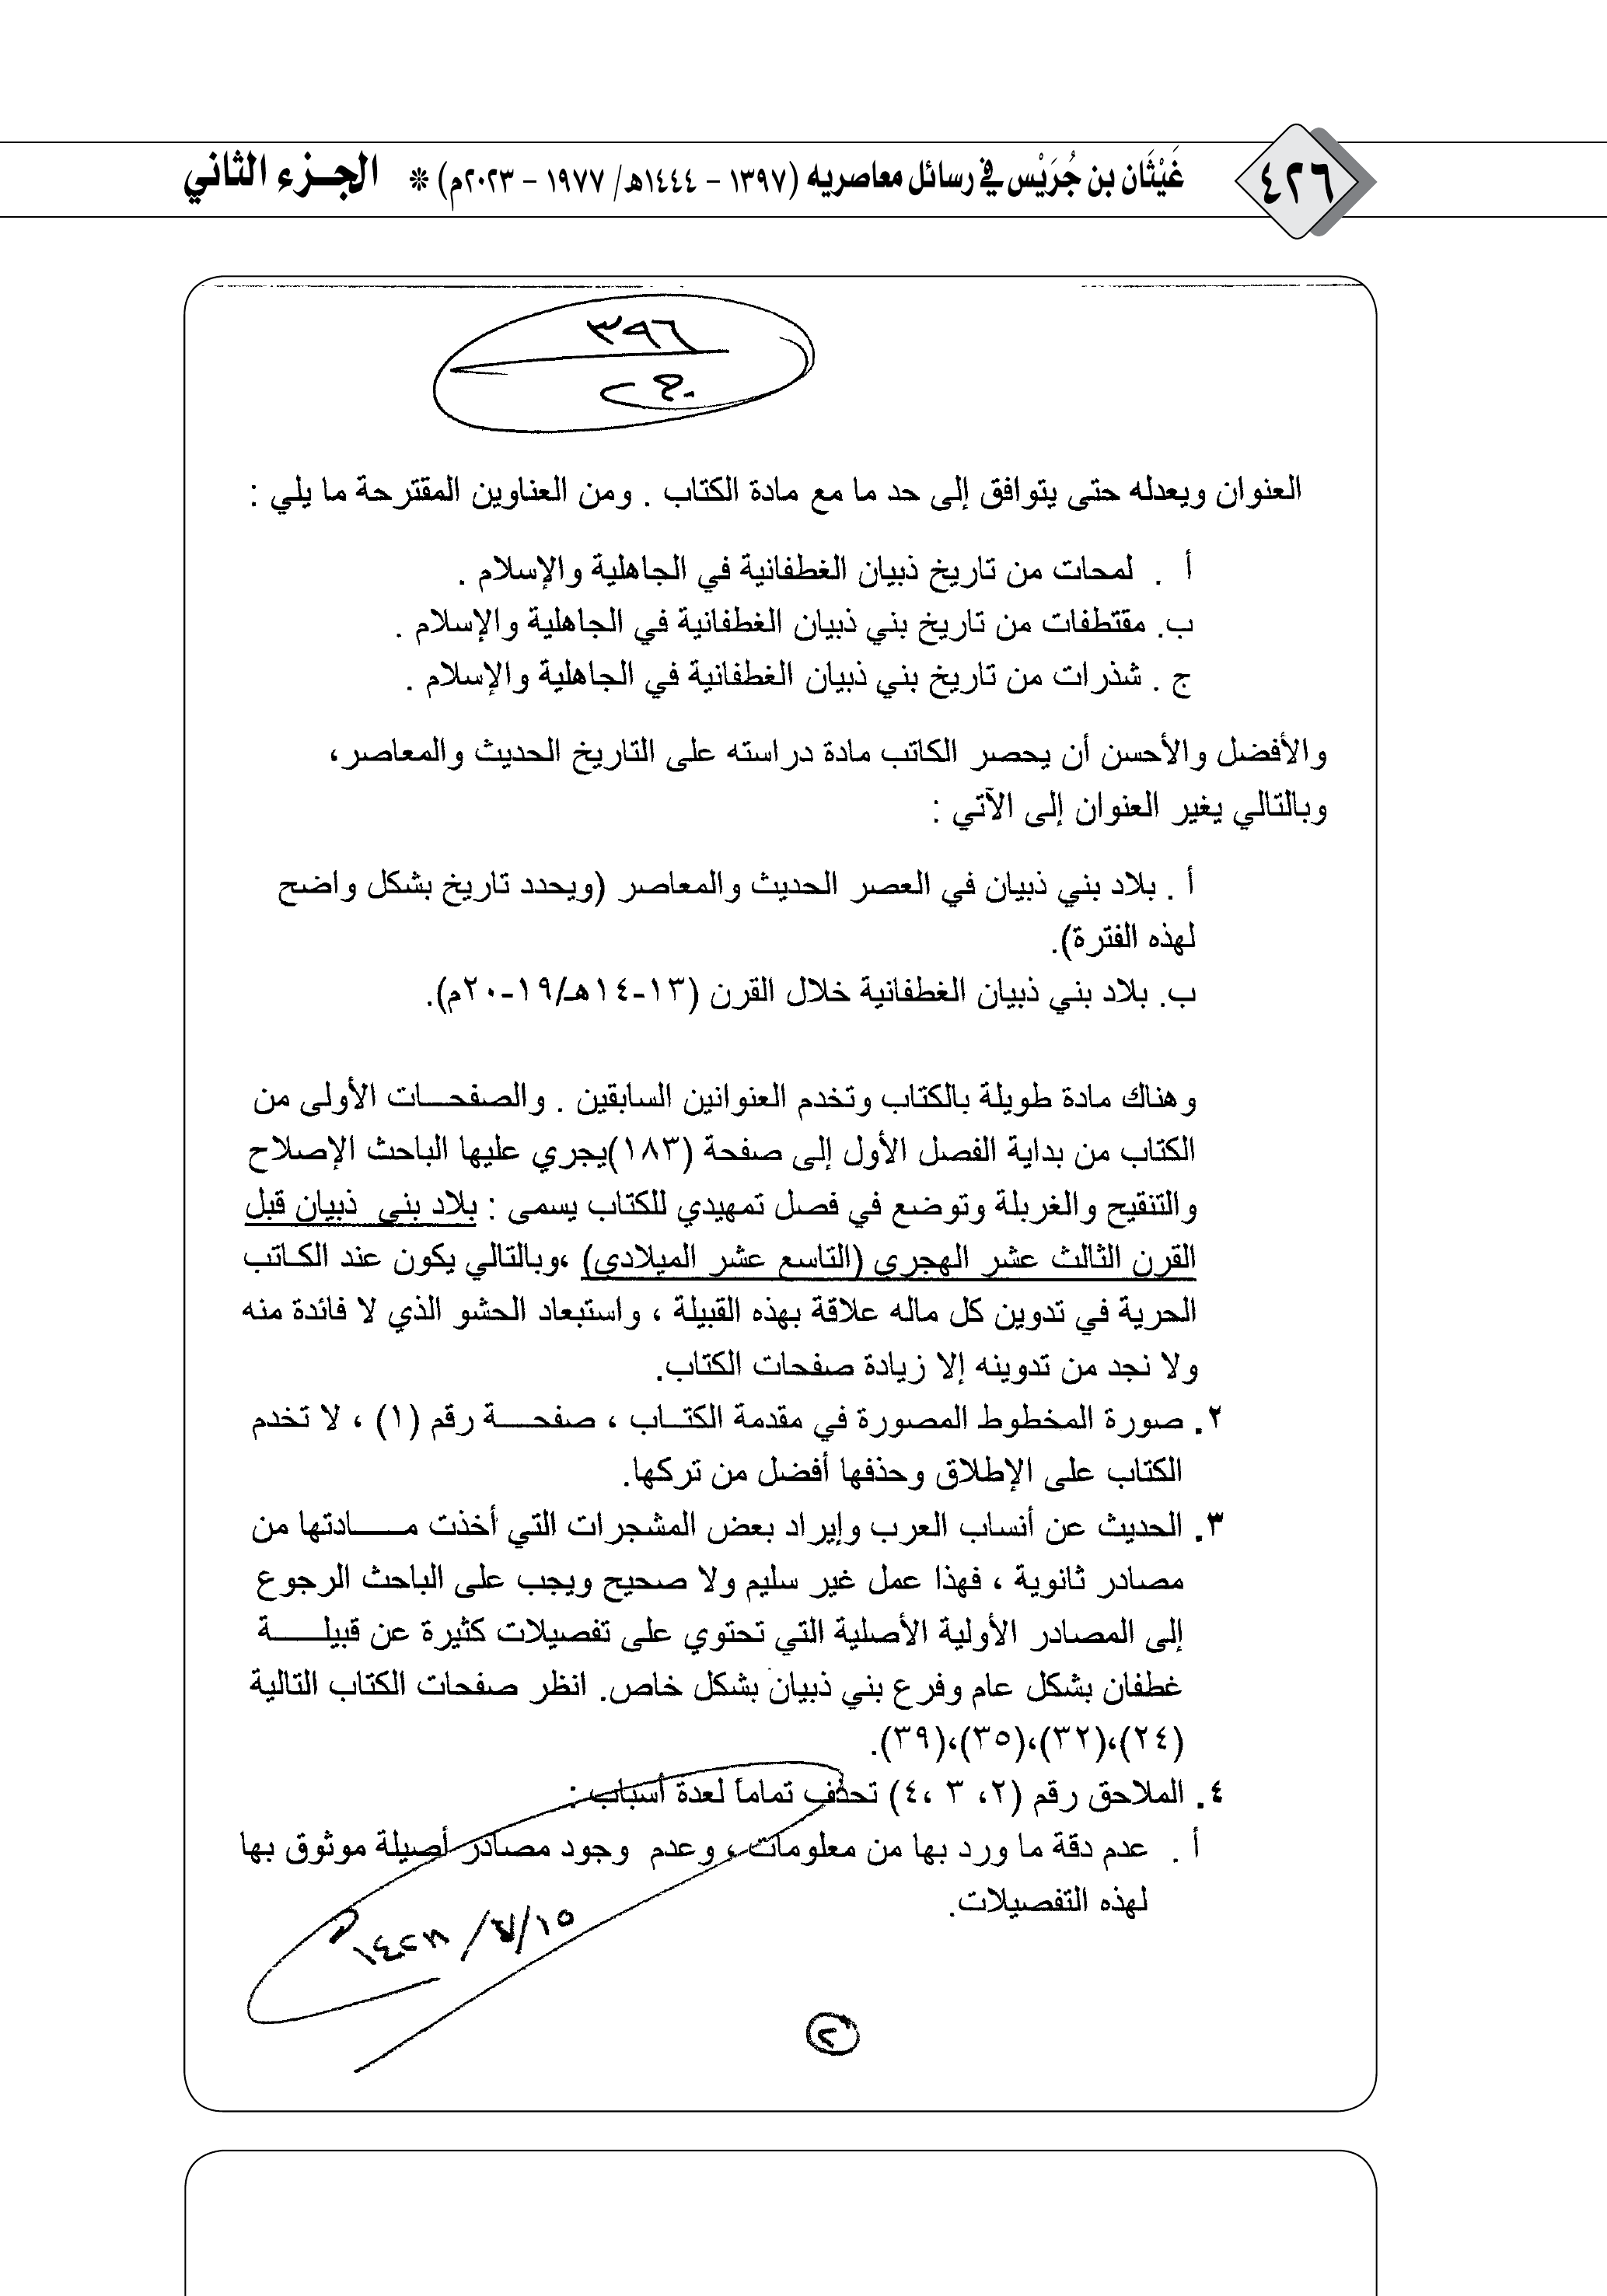 ٤٢٦
غَيْثَان بن جُرَيْس في رسائل معاصريه (١٣٩٧ - ١٤٤٤هـ/ ١٩٧٧ - ٢٠٢٣م) * الجـزء الثاني
٣٩٦
العنوان ويعدله حتى يتوافق إلى حد ما مع مادة الكتاب . ومن العناوين المقترحة ما يلي :
أ . لمحات من تاريخ ذبيان الغطفانية في الجاهلية والإسلام .
ب. مقتطفات من تاريخ بني ذبيان الغطفانية في الجاهلية والإسلام .
ج . شذرات من تاريخ بني ذبيان الغطفانية في الجاهلية والإسلام .
والأفضل والأحسن أن يحصر الكاتب مادة دراسته على التاريخ الحديث والمعاصر،
وبالتالي يغير العنوان إلى الآتي :
أ . بلاد بني ذبيان في العصر الحديث والمعاصر (ويحدد تاريخ بشكل واضح
لهذه الفترة).
ب. بلاد بني ذبيان الغطفانية خلال القرن (١٣-١٤هـ/١٩-٢٠م).
وهناك مادة طويلة بالكتاب وتخدم العنوانين السابقين . والصفحـــات الأولى من
الكتاب من بداية الفصل الأول إلى صفحة (١٨٣)يجري عليها الباحث الإصلاح
والتنقيح والغربلة وتوضع في فصل تمهيدي للكتاب يسمى : بلاد بني ذبيان قبل
القرن الثالث عشر الهجري (التاسع عشر الميلادي) ،وبالتالي يكون عند الكـاتب
الحرية في تدوين كل ماله علاقة بهذه القبيلة ، واستبعاد الحشو الذي لا فائدة منه
ولا نجد من تدوينه إلا زيادة صفحات الكتاب.
٢. صورة المخطوط المصورة في مقدمة الكتــاب ، صفحـــة رقم (١) ، لا تخدم
الكتاب على الإطلاق وحذفها أفضل من تركها.
٣. الحديث عن أنساب العرب وإيراد بعض المشجرات التي أخذت مـــــادتها من
مصادر ثانوية ، فهذا عمل غير سليم ولا صحيح ويجب على الباحث الرجوع
إلى المصادر الأولية الأصلية التي تحتوي على تفصيلات كثيرة عن قبيلـــــة
غطفان بشكل عام وفرع بني ذبيان بشكل خاص. انظر صفحات الكتاب التالية
(٢٤)،(٣٢)،(٣٥)،(٣٩).
٤. الملاحق رقم (٢، ٣ ،٤) تحذف تماماً لعدة أسباب :
أ . عدم دقة ما ورد بها من معلومات ، وعدم وجود مصادر أصيلة موثوق بها
لهذه التفصيلات.
٢